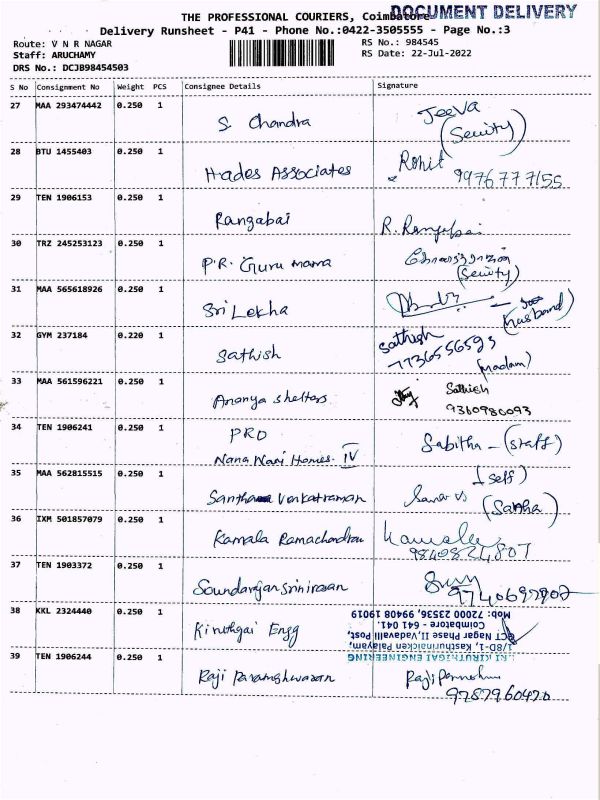 THE PROFESSIONAL COURIERS, Coimbatore
DOCUMENT DELIVERY
Delivery Runsheet - P41 - Phone No.:0422-3505555 - Page No.:3
Route: V N R NAGAR
RS No.: 984545
Staff: ARUCHAMY
RS Date: 22-Jul-2022
DRS No.: DCJB98454503
S No Consignment No Weight PCS Consignee Details Signature
27 MAA 293474442 0.250 1 S. Chandra Jeeva
(Seuity)
28 BTU 1455403 0.250 1 Hades Associates Rohit
9976777155
29 TEN 1906153 0.250 1 Rangabai R.
30 TRZ 245253123 0.250 1 P.R. Guru
(Seuity)
31 MAA 565618926 0.250 1 Sri Lekha
(husband)
32 GYM 237184 0.220 1 Sathish Sathish
7736556593
(madam)
33 MAA 561596221 0.250 1 Ananya shelters Sathish
9360980093
34 TEN 1906241 0.250 1 PRO
Nana Nani Homes. IV Sabitha - (staff)
35 MAA 562815515 0.250 1 Santhana Venkatraman (self)
36 IXM 501857079 0.250 1 Kamala Ramachandran Kamala
9840824807
37 TEN 1903372 0.250 1 Soundarajan Srinivasan
9740697902
38 KKL 2324440 0.250 1 Kiruthigai Engg
SRI KIRUTHIGAI ENGINEERING
1/8D-1, Kasthurinaicken Palayam,
GCT Nagar Phase II, Vadavalli Post,
Coimbatore - 641 041.
Mob: 72000 23536, 99408 19019
39 TEN 1906244 0.250 1 Raji Parameshwaran Raji
9787960420